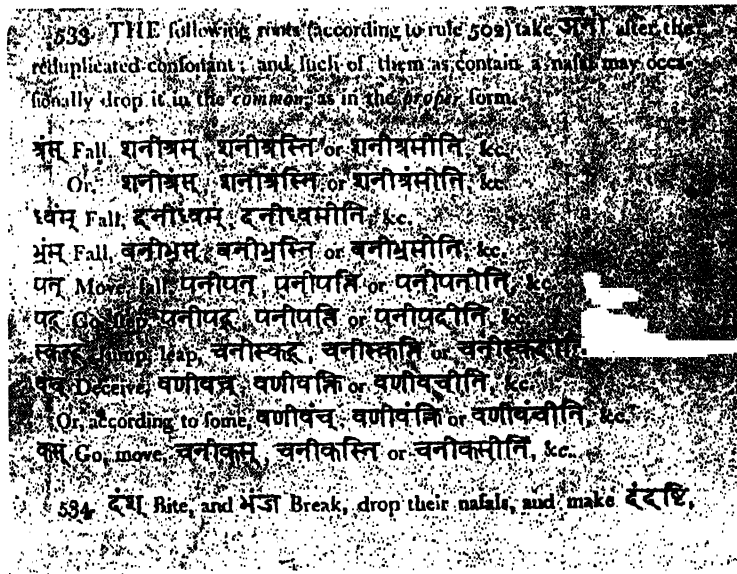 533. THE following roots (according to rule 502) take अनी after the
reduplicated conſonant: and ſuch of them as contain a naſal may occa-
ſionally drop it in the common, as in the proper form.
श्रंस् Fall, शनीश्रस्, शनीश्रस्ति or शनीश्रसीति, &c.
Or, शनीश्रंस्, शनीश्रंस्ति or शनीश्रंसीति, &c.
ध्वंस् Fall, दनीध्वस्, दनीध्वसीति, &c.
भ्रंस् Fall, बनीभ्रस्, बनीभ्रस्ति or बनीभ्रसीति, &c.
पत् Move, fall, पनीपत्, पनीपत्ति or पनीपतीति, &c.
पद् Go, ſtep, पनीपद्, पनीपत्ति or पनीपदीति, &c.
स्कन्द् Jump, leap, चनीस्कद्, चनीस्कत्ति or चनीस्कदीति,
वंच् Deceive, वणीवच्, वणीवक्ति or वणीवचीति, &c.
Or, according to ſome, वणीवंच्, वणीवंक्ति or वणीवंचीति, &c.
कस् Go, move, चनीकस्, चनीकस्ति or चनीकसीति, &c.
534. दंश् Bite, and भञ्ज Break, drop their naſals, and make दंदष्टि,